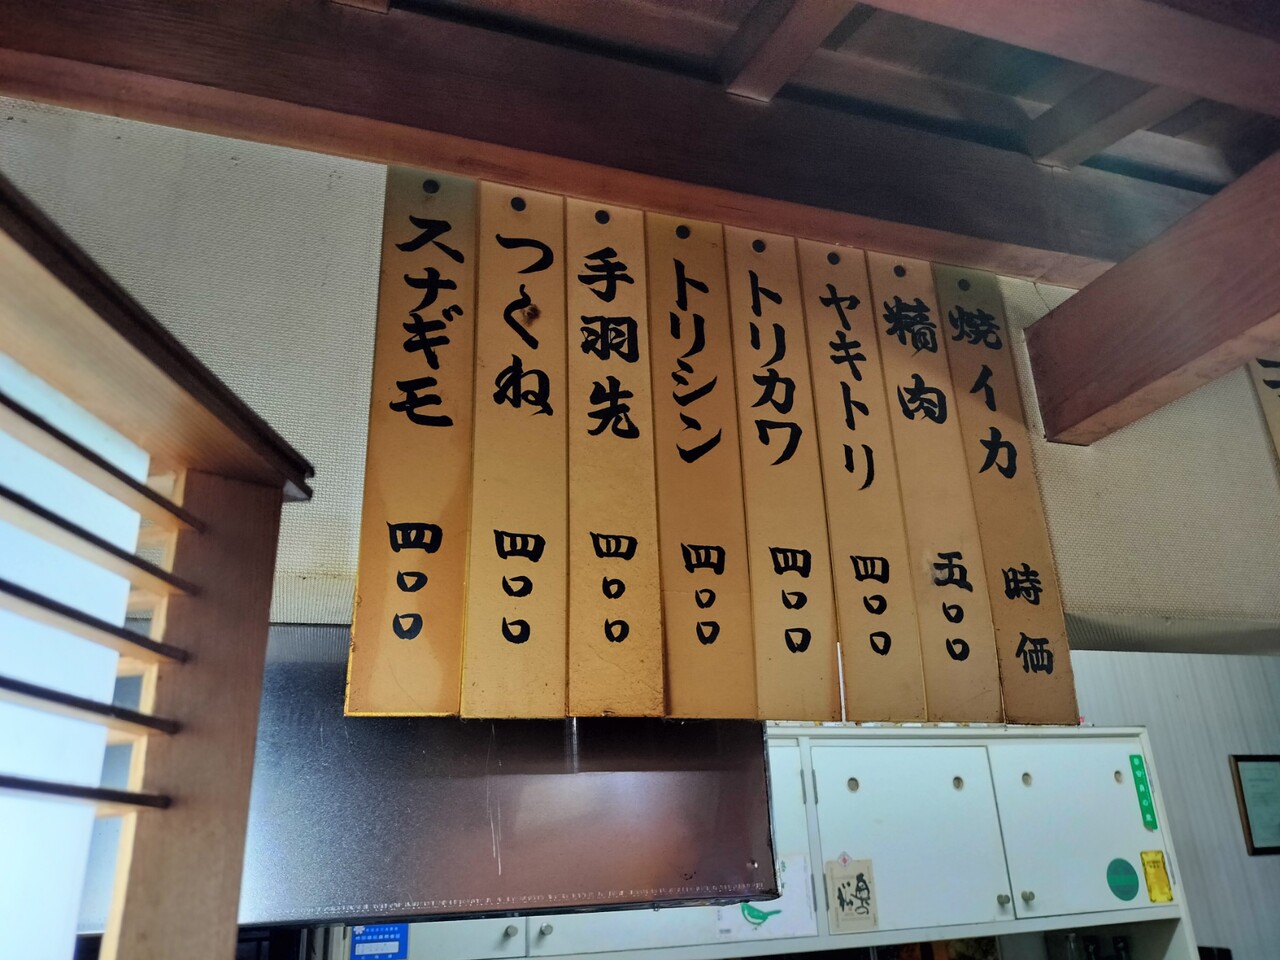 焼イカ 時価
精肉 五〇〇
ヤキトリ 四〇〇
トリカワ 四〇〇
トリシン 四〇〇
手羽先 四〇〇
つくね 四〇〇
スナギモ 四〇〇